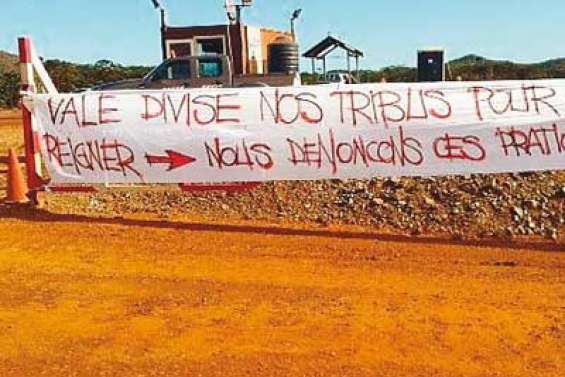 VALE DIVISE NOS TRIBUS POUR
REIGNER → NOUS DENONCONS CES PRATI